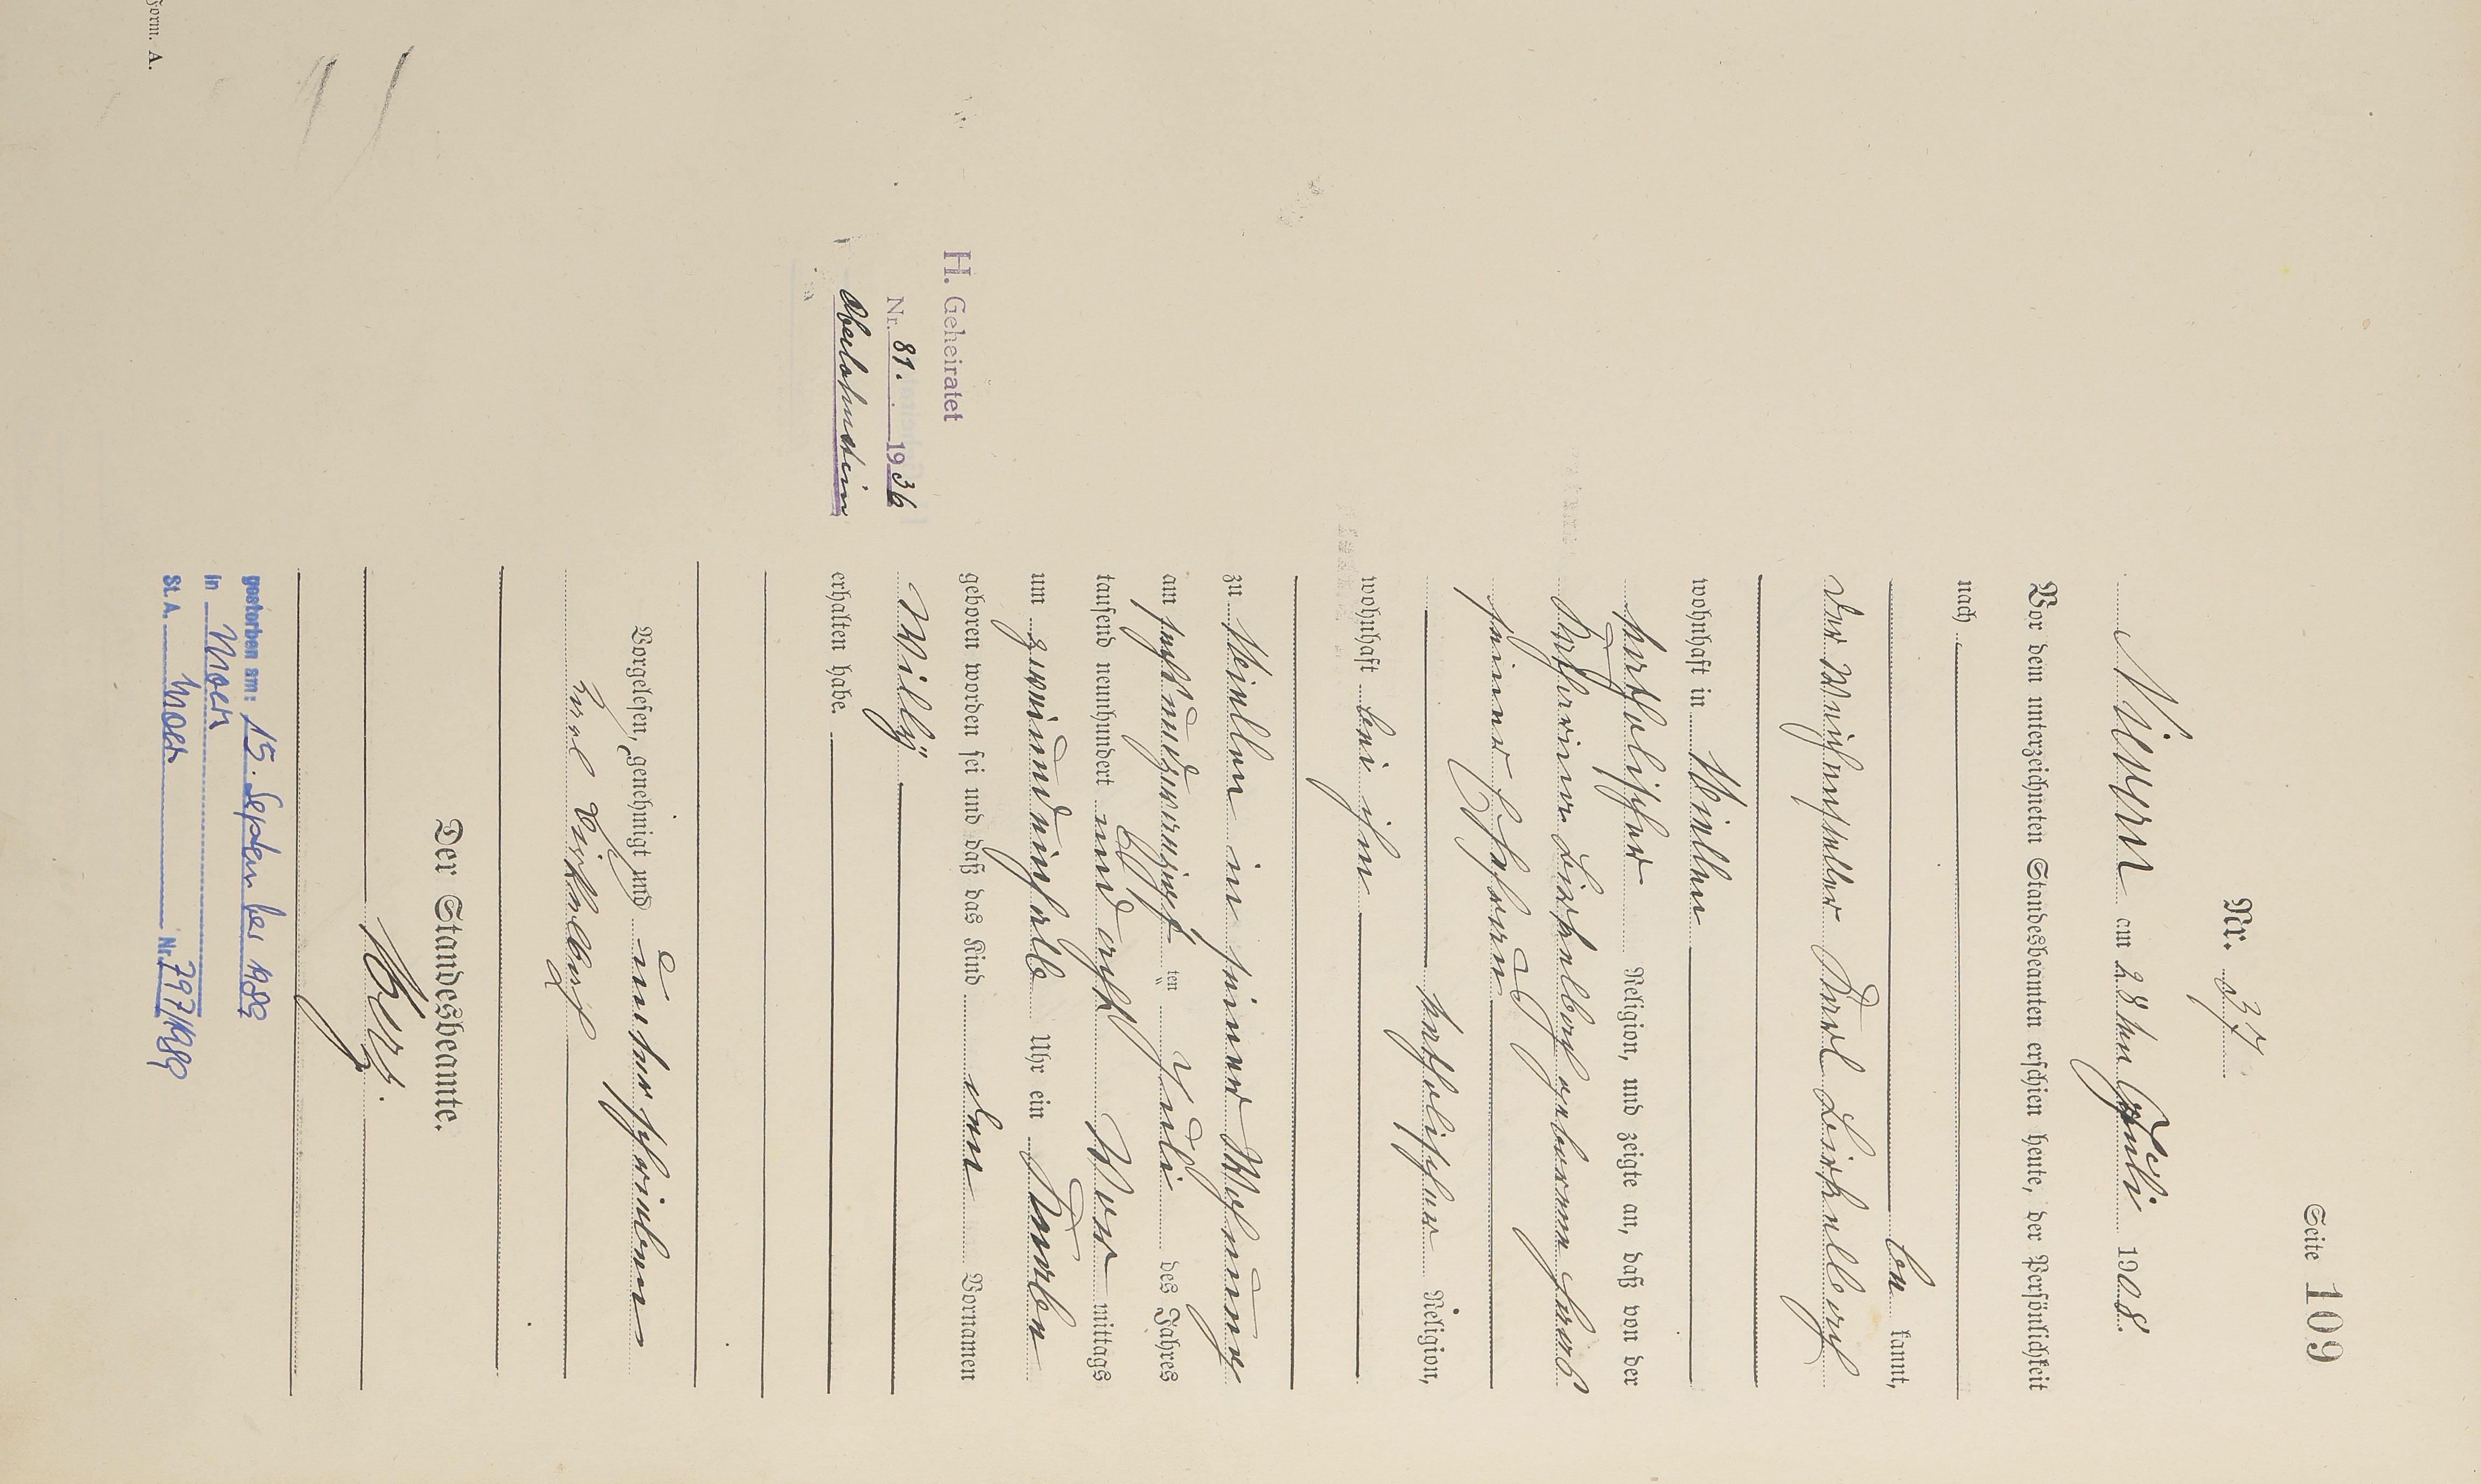 Seite 109
Nr. 37
Nievern am 28ten Juli 1908.
Vor dem unterzeichneten Standesbeamten erschien heute, der Persönlichkeit
nach
be kannt,
der Weichensteller Karl
wohnhaft in Miellen
katholischer Religion, und zeigte an, daß von der
Katharina geborenen
seiner Ehefrau
katholischer Religion,
wohnhaft bei ihm
zu Miellen in seiner Wohnung
am sechsundzwanzigsten Juli des Jahres
tausend neunhundert und acht Vor mittags
um zweiundeinhalb Uhr ein Knabe
geboren worden sei und daß das Kind den Vornamen
Willy
erhalten habe.
Vorgelesen, genehmigt und unterschrieben
Karl
Der Standesbeamte.
H. Geheiratet
Nr. 81. 1936
Oberlahnstein
gestorben am: 15. September 1989
in Moers
St. A. Moers Nr. 797/1989
Form. A.